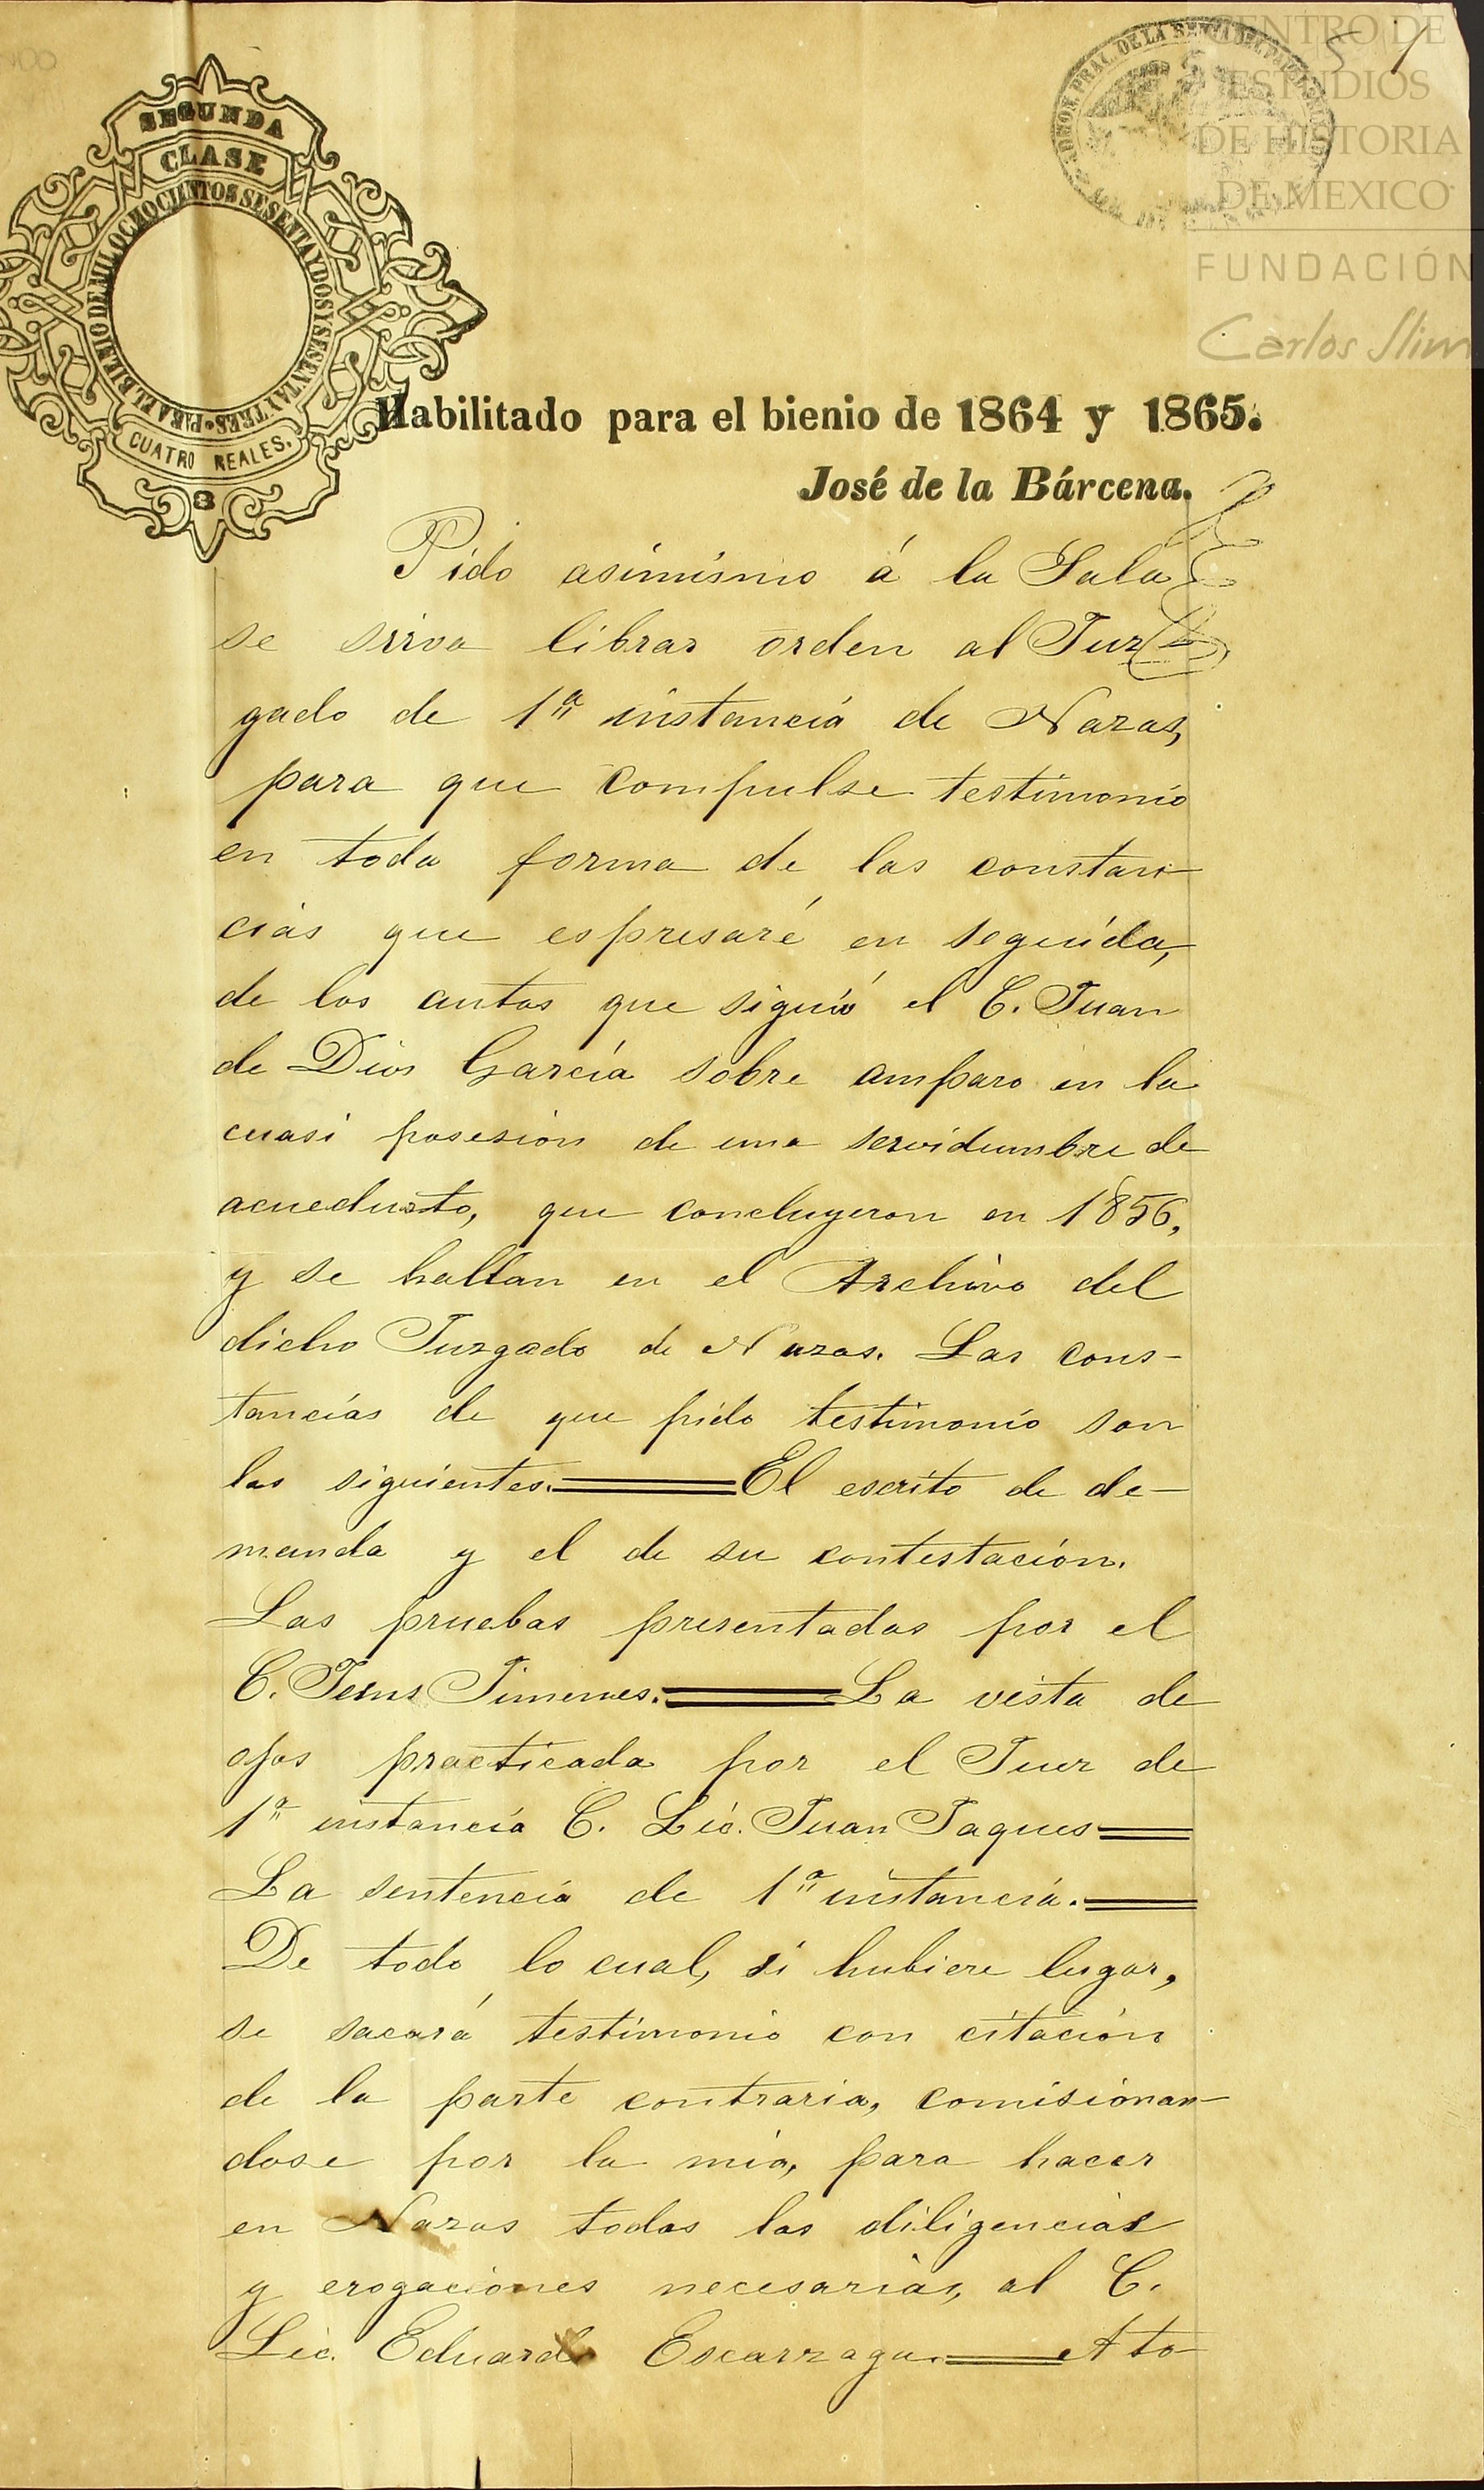 SEGUNDA
CLASE
PARA EL BIENIO DE MIL OCHOCIENTOS SESENTA Y DOS Y SESENTA Y TRES
CUATRO REALES.
8
CENTRO DE
ESTUDIOS
DE HISTORIA
DE MEXICO
FUNDACIÓN
Carlos Slim
Habilitado para el bienio de 1864 y 1865.
José de la Bárcena.
Pido asimismo á la Sala
se sirva librar orden al Juz
gado de 1ª instancia de Nazas,
para que compulse testimonio
en toda forma de las constan
cias que espresaré en seguida,
de los autos que siguió el C. Juan
de Dios García sobre amparo en la
cuasi posesión de una servidumbre de
acueducto, que concluyeron en 1856,
y se hallan en el Archivo del
dicho Juzgado de Nazas. Las cons-
tancias de que pido testimonio son
las siguientes. El escrito de de-
manda y el de su contestación.
Las pruebas presentadas por el
C. Jesus Jimenes. La vista de
ojos practicada por el Juez de
1ª instancia C. Lic. Juan Jaques
La sentencia de 1ª instancia.
De todo lo cual, si hubiere lugar,
se sacará testimonio con citación
de la parte contraria, comisionan-
dose por la mia, para hacer
en Nazas todas las diligencias
y erogaciones necesarias, al C.
Lic. Eduardo Escarzaga. A to-